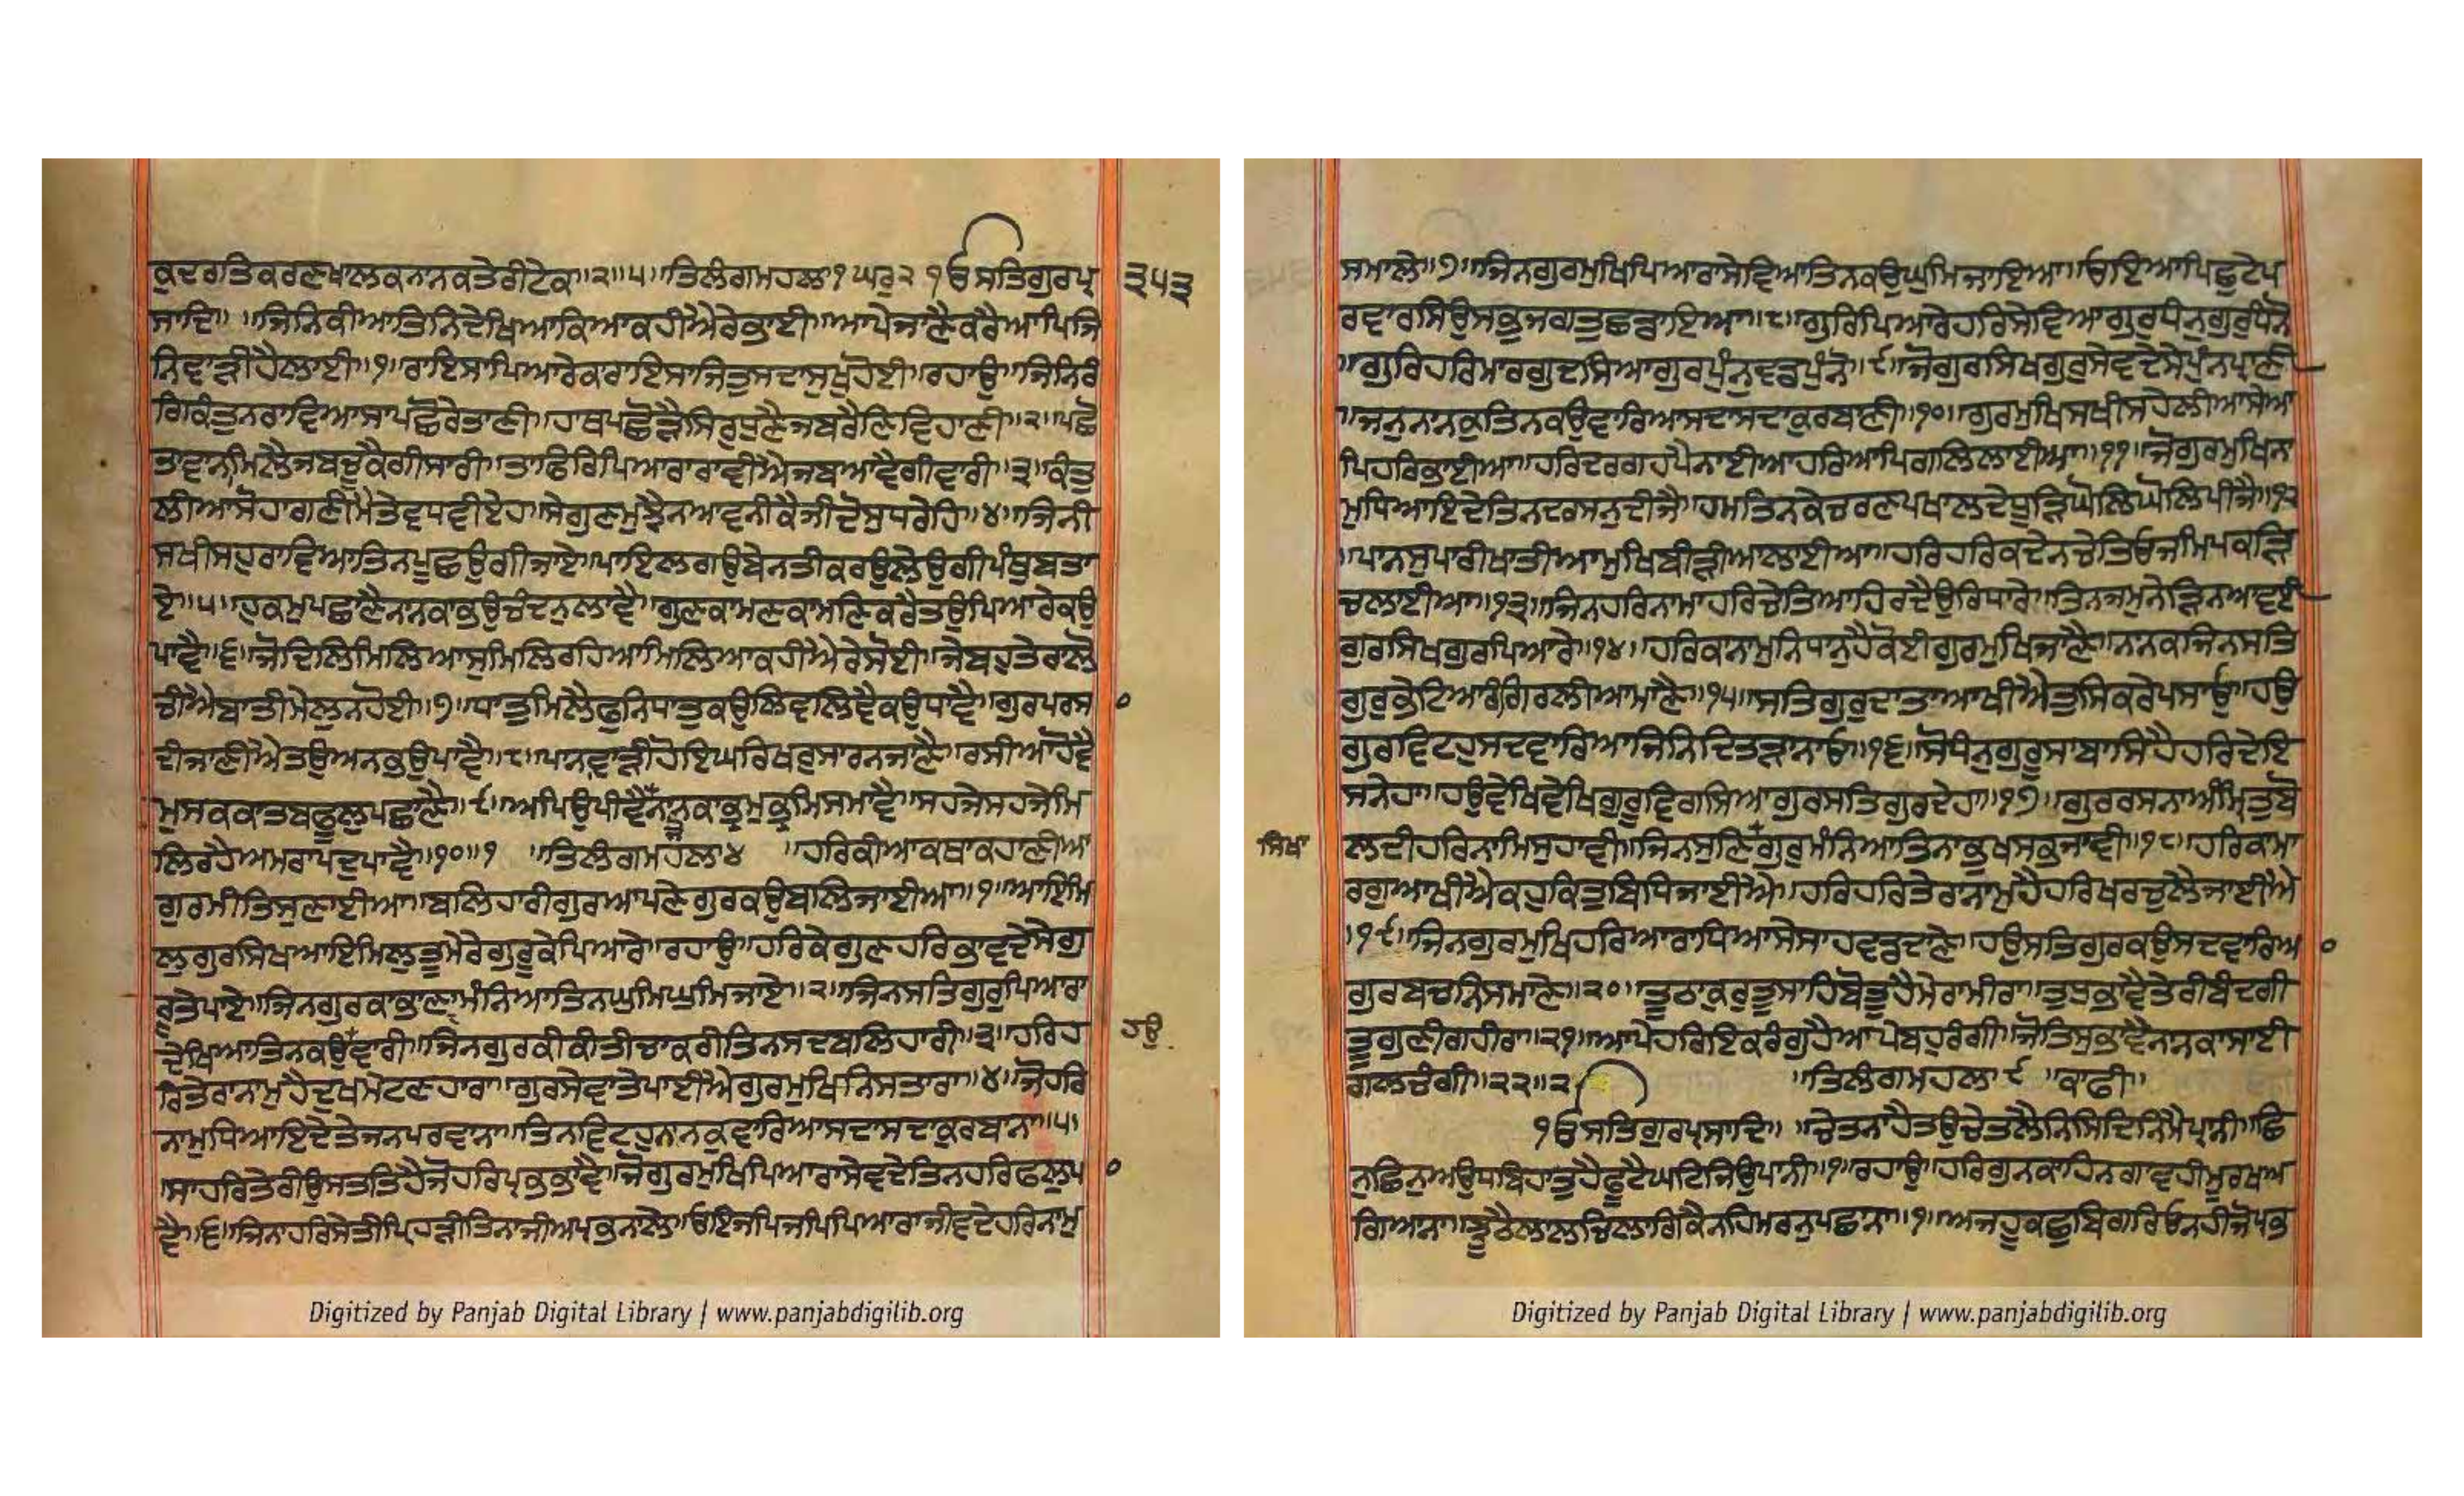 ਕੁਦਰਤਿਕਰਣਖਾਲਕਨਾਨਕਤੇਰੀਟੇਕ॥੨॥੫॥ਤਿਲੰਗਮਹਲਾ੧ਘਰੁ੨ ੧ੳਸਤਿਗੁਰਪ੍ਰ
੩੫੩
ਸਾਦਿ॥ ॥ਜਿਨਿਕੀਆਤਿਨਿਦੇਖਿਆਕਿਆਕਹੀਐਰੇਭਾਈ॥ਆਪੇਜਾਣੈਕਰੈਆਪਿਜਿ
ਨਿਵਾੜੀਹੈਲਾਈ॥੧॥ਰਾਇਸਾਪਿਆਰੇਕਾਰਾਇਸਾਜਿਤੁਸਦਾਸੁਖੁਹੋਈ॥ਰਹਾਉ॥ਜਿਨਿਰੰ
ਗਿਕੰਤੁਨਰਾਵਿਆਸਾਪਛੋਰੇਤਾਣੀ॥ਹਾਥਪਛੋੜੈਸਿਰੁਧੁਣੈਜਬਰੈਣਿਵਿਹਾਣੀ॥੨॥ਪਛੋ
ਤਾਵਾਨਾਮਿਲੈਜਬਚੂਕੈਗੀਸਾਰੀ॥ਤਾਫਿਰਿਪਿਆਰਾਰਾਵੀਐਜਬਆਵੈਗੀਵਾਰੀ॥੩॥ਕੰਤੁ
ਲੀਆਸੋਹਾਗਣੀਮੈਤੇਵਧਵੀਏਹ॥ਸੇਗੁਣਮੁਝੈਨਆਵਨੀਕੈਜੀਦੋਸੁਧਰੇਹਿ॥੪॥ਜਿਨੀ
ਸਖੀਸਹੁਰਾਵਿਆਤਿਨਪੂਛਉਗੀਜਾਏ॥ਪਾਇਲਗਉਬੇਨਤੀਕਰਉਲੇਉਗੀਪੰਥੁਬਤਾ
ਏ॥੫॥ਹੁਕਮੁਪਛਾਣੈਨਾਨਕਾਭਉਚੰਦਨੁਲਾਵੈ॥ਗੁਣਕਾਮਣਕਾਮਣਿਕਰੈਤਉਪਿਆਰੇਕਉ
ਪਾਵੈ॥੬॥ਜੋਦਿਲਿਮਿਲਿਆਸੁਮਿਲਿਰਹਿਆਮਿਲਿਆਕਹੀਐਰੇਸੋਈ॥ਜੇਬਹੁਤੇਰਾਲੋ
ਚੀਐਬਾਤੀਮੇਲੁਨਹੋਈ॥੭॥ਧਾਤੁਮਿਲੈਫੁਨਿਧਾਤੁਕਉਲਿਵਲਿਵੈਕਉਧਾਵੈ॥ਗੁਰਪਰਸਾ
ਦੀਜਾਣੀਐਤਉਅਨਭਉਪਾਵੈ॥੮॥ਪਾਨਾਵਾੜੀਹੋਇਘਰਿਖਰੁਸਾਰਨਜਾਣੈ॥ਰਸੀਆਹੋਵੈ
ਮੁਸਕਕਾਤਬਫੂਲੁਪਛਾਣੈ॥੯॥ਅਪਿਉਪੀਵੈਨਾਨਕਾਭ੍ਰਮੁਭ੍ਰਮਿਸਮਾਵੈ॥ਸਹਜੇਸਹਜੇਮਿ
ਲਿਰਹੈਅਮਰਾਪਦੁਪਾਵੈ॥੧੦॥੧ ॥ਤਿਲੰਗਮਹਲਾ੪ ॥ਹਰਿਕੀਆਕਥਾਕਹਾਣੀਆ
ਗੁਰਮੀਤਿਸੁਣਾਈਆ॥ਬਲਿਹਾਰੀਗੁਰਆਪਣੇਗੁਰਕਉਬਲਿਜਾਈਆ॥੧॥ਆਇਮਿ
ਲੁਗੁਰਸਿਖਆਇਮਿਲੁਤੂਮੇਰੇਗੁਰੂਕੇਪਿਆਰੇ॥ਰਹਾਉ॥ਹਰਿਕੇਗੁਣਹਰਿਭਾਵਦੇਸੇਗੁ
ਰੂਤੇਪਾਏ॥ਜਿਨਗੁਰਕਾਭਾਣਾਮੰਨਿਆਤਿਨਘੁਮਿਘੁਮਿਜਾਏ॥੨॥ਜਿਨਸਤਿਗੁਰੁਪਿਆਰਾ
ਦੇਖਿਆਤਿਨਕਉਵਾਰੀ॥ਜਿਨਗੁਰਕੀਕੀਤੀਚਾਕਰੀਤਿਨਸਦਬਲਿਹਾਰੀ॥੩॥ਹਰਿਹ
ਹਉ
ਰਿਤੇਰਾਨਾਮੁਹੈਦੁਖਮੇਟਣਹਾਰਾ॥ਗੁਰਸੇਵਾਤੇਪਾਈਐਗੁਰਮੁਖਿਨਿਸਤਾਰਾ॥੪॥ਜੋਹਰਿ
ਨਾਮੁਧਿਆਇਦੇਤੇਜਨਪਰਵਾਨਾ॥ਤਿਨਵਿਟਹੁਨਾਨਕੁਵਾਰਿਆਸਦਾਸਦਾਕੁਰਬਾਨਾ॥੫॥
ਸਾਹਰਿਤੇਰੀਉਸਤਤਿਹੈਜੋਹਰਿਪ੍ਰਭਭਾਵੈ॥ਜੋਗੁਰਮੁਖਿਪਿਆਰਾਸੇਵਦੇਤਿਨਹਰਿਫਲੁਪਾ
ਵੈ॥੬॥ਜਿਨਾਹਰਿਸੇਤੀਪਿਰਹੜੀਤਿਨਾਜੀਅਪ੍ਰਭਨਾਲੇ॥ਓਇਜਪਿਜਪਿਪਿਆਰਾਜੀਵਦੇਹਰਿਨਾਮੁ
ਸਮਾਲੇ॥੭॥ਜਿਨਗੁਰਮੁਖਿਪਿਆਰਾਸੇਵਿਆਤਿਨਕਉਘੁਮਿਜਾਇਆ॥ਓਇਆਪਿਛੁਟੇਪ
ਰਵਾਰਸਿਉਸਭੁਜਗਤੁਛਡਾਇਆ॥੮॥ਗੁਰਿਪਿਆਰੇਹਰਿਸੇਵਿਆਗੁਰੁਧੰਨੁਗੁਰੁਧੰਨੋ
॥ਗੁਰਿਹਰਿਮਾਰਗੁਦਸਿਆਗੁਰਪੁੰਨੁਵਡਪੁੰਨੋ॥੯॥ਜੋਗੁਰਸਿਖਗੁਰੁਸੇਵਦੇਸੇਪੁੰਨਪ੍ਰਾਣੀ
॥ਜਨੁਨਾਨਕੁਤਿਨਕਉਵਾਰਿਆਸਦਾਸਦਾਕੁਰਬਾਣੀ॥੧੦॥ਗੁਰਮੁਖਿਸਖੀਸਹੇਲੀਆਸੇਆ
ਪਿਹਰਿਭਾਈਆ॥ਹਰਿਦਰਗਹਪੈਨਾਈਆਹਰਿਆਪਿਗਲਿਲਾਈਆ॥੧੧॥ਜੋਗੁਰਮੁਖਿਨਾ
ਮੁਧਿਆਇਦੇਤਿਨਦਰਸਨੁਦੀਜੈ॥ਹਮਤਿਨਕੇਚਰਣਪਖਾਲਦੇਧੂੜਿਘੋਲਿਘੋਲਿਪੀਜੈ॥੧੨
॥ਪਾਨਸੁਪਾਰੀਖਾਤੀਆਮੁਖਿਬੀੜੀਆਲਾਈਆ॥ਹਰਿਹਰਿਕਦੇਨਚੇਤਿਓਜਮਿਪਕੜਿ
ਚਲਾਈਆ॥੧੩॥ਜਿਨਹਰਿਨਾਮਾਹਰਿਚੇਤਿਆਹਿਰਦੈਉਰਿਧਾਰੇ॥ਤਿਨਜਮੁਨੇੜਿਨਆਵਈ
ਗੁਰਸਿਖਗੁਰਪਿਆਰੇ॥੧੪॥ਹਰਿਕਾਨਾਮੁਨਿਧਾਨੁਹੈਕੋਈਗੁਰਮੁਖਿਜਾਣੈ॥ਨਾਨਕਜਿਨਸਤਿ
ਗੁਰੁਭੇਟਿਆਰੰਗਿਰਲੀਆਮਾਣੈ॥੧੫॥ਸਤਿਗੁਰੁਦਾਤਾਆਖੀਐਤੁਸਿਕਰੇਪਸਾਉ॥ਹਉ
ਗੁਰਵਿਟਹੁਸਦਵਾਰਿਆਜਿਨਿਦਿਤੜਾਨਾਉ॥੧੬॥ਸੋਧੰਨੁਗੁਰੂਸਾਬਾਸਿਹੈਹਰਿਦੇਇ
ਸਨੇਹਾ॥ਹਉਵੇਖਿਵੇਖਿਗੁਰੂਵਿਗਸਿਆਗੁਰਸਤਿਗੁਰਦੇਹਾ॥੧੭॥ਗੁਰਰਸਨਾਅੰਮ੍ਰਿਤੁਬੋ
ਸਿਖਾ
ਲਦੀਹਰਿਨਾਮਿਸੁਹਾਵੀ॥ਜਿਨਸੁਣਿਗੁਰੁਮੰਨਿਆਤਿਨਾਭੁਖਸਭਜਾਵੀ॥੧੮॥ਹਰਿਕਾਮਾ
ਰਗੁਆਖੀਐਕਹੁਕਿਤੁਬਿਧਿਜਾਈਐ॥ਹਰਿਹਰਿਤੇਰਾਨਾਮੁਹੈਹਰਿਖਰਚੁਲੈਜਾਈਐ
॥੧੯॥ਜਿਨਗੁਰਮੁਖਿਹਰਿਆਰਾਧਿਆਸੇਸਾਹਵਡਦਾਣੇ॥ਹਉਸਤਿਗੁਰਕਉਸਦਵਾਰਿਆ
ਗੁਰਬਚਨਿਸਮਾਣੇ॥੨੦॥ਤੂਠਾਕੁਰੁਤੂਸਾਹਿਬੋਤੂਹੈਮੇਰਾਮੀਰਾ॥ਤੁਧੁਭਾਵੈਤੇਰੀਬੰਦਗੀ
ਤੂਗੁਣੀਗਹੀਰਾ॥੨੧॥ਆਪੇਹਰਿਇਕਰੰਗੁਹੈਆਪੇਬਹੁਰੰਗੀ॥ਜੋਤਿਸੁਭਾਵੈਨਾਨਕਾਸਾਈ
ਗਲਚੰਗੀ॥੨੨॥੨ ॥ਤਿਲੰਗਮਹਲਾ੯ ॥ਕਾਫੀ॥
੧ੳਸਤਿਗੁਰਪ੍ਰਸਾਦਿ॥ ॥ਚੇਤਨਾਹੈਤਉਚੇਤਲੈਨਿਸਿਦਿਨਿਮੈਪ੍ਰਾਨੀ॥ਛਿ
ਨੁਛਿਨੁਅਉਧਬਿਹਾਤੁਹੈਫੂਟੈਘਟਿਜਿਉਪਾਨੀ॥੧॥ਰਹਾਉ॥ਹਰਿਗੁਨਕਾਹਿਨਗਾਵਹੀਮੂਰਖਅ
ਗਿਆਨਾ॥ਝੂਠੈਲਾਲਚਿਲਾਗਿਕੈਨਹਿਮਰਨੁਪਛਾਨਾ॥੧॥ਅਜਹੂਕਛੁਬਿਗਰਿਓਨਹੀਜੋਪ੍ਰਭ
Digitized by Panjab Digital Library | www.panjabdigilib.org
Digitized by Panjab Digital Library | www.panjabdigilib.org